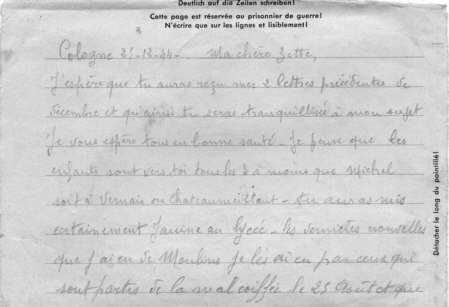 Deutlich auf die Zeilen schreiben!
Cette page est réservée au prisonnier de guerre!
N'écrire que sur les lignes et lisiblement!
Cologne 21-12-44- Ma chère Zette,
J'espère que tu auras reçu mes 2 lettres précédentes de
décembre et qu'ainsi tu seras tranquillisée à mon sujet
Je vous espère tous en bonne santé - Je pense que les
enfants sont vers toi tous les à moins que Michel
soit à ou - tu auras mis
certainement Janine au lycée - les dernières nouvelles
que j'ai eu de Moulins je les ai eu par ceux qui
sont partis de la mal coiffée le 25 Août et que
Détacher le long du pointillé!